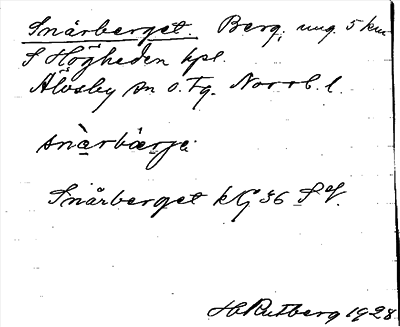 Snårberget. Berg, ung. 5 km
S Högheden hpl.
Älvsby sn o. tg. Norrb. l.
snàrbärje
Snårberget kG 36 S of.
H. Rutberg 1928